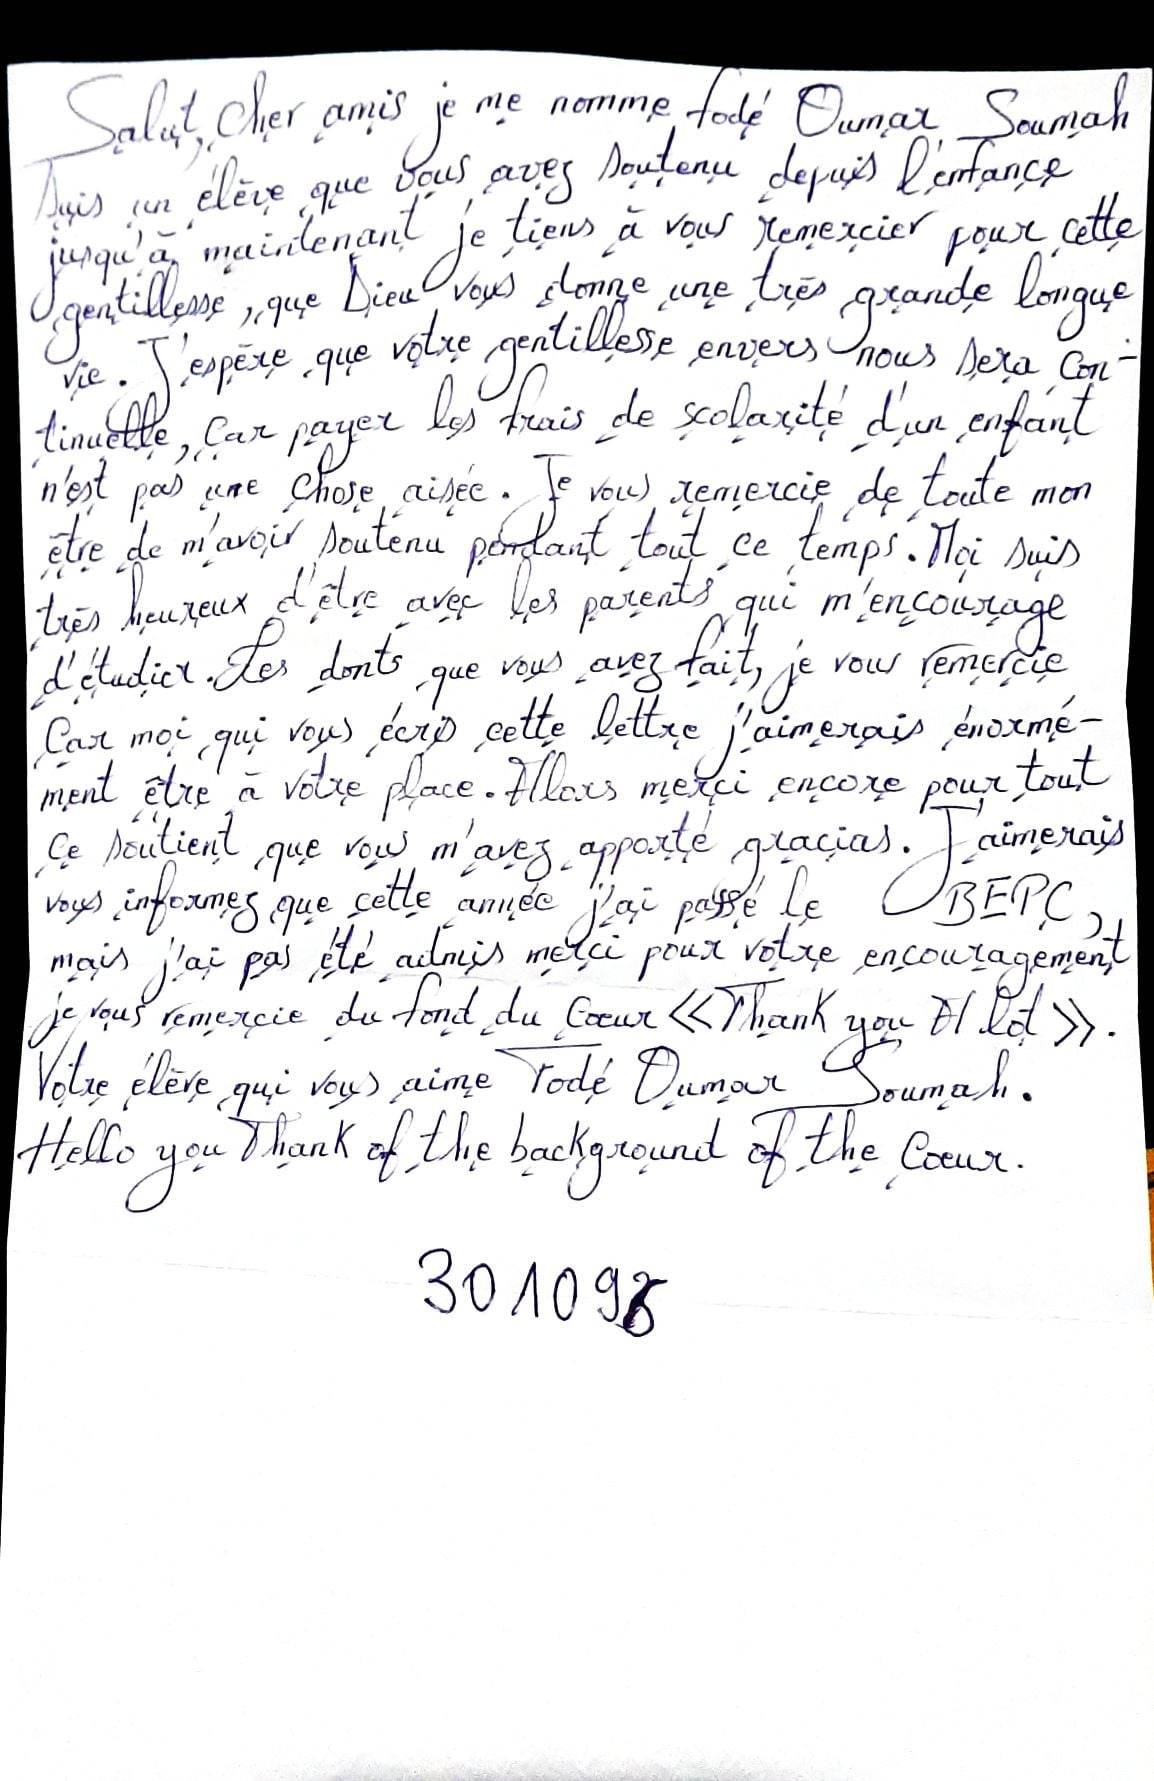 Salut, Cher amis je me nomme fodé Oumar Soumah
Suis un élève que vous avez soutenu depuis l'enfance
jusqu'à maintenant je tiens à vous remercier pour cette
gentillesse, que Dieu vous donne une très grande longue
vie. J'espère que votre gentillesse envers nous sera con-
tinuelle, Car payer les frais de scolarité d'un enfant
n'est pas une Chose aisée. Je vous remercie de toute mon
être de m'avoir soutenu pendant tout ce temps. Moi suis
très heureux d'être avec les parents qui m'encourage
d'étudier. Les donts que vous avez fait, je vous remercie
Car moi qui vous écris cette lettre j'aimerais énormé-
ment être à votre place. Alors merci encore pour tout
Ce soutient que vous m'avez apporté gracias. J'aimerais
vous informez que cette année j'ai passé le BEPC,
mais j'ai pas été admis merci pour votre encouragement
je vous remercie du fond du Cœur «Thank you A lot».
Votre élève qui vous aime Fodé Oumar Soumah.
Hello you Thank of the background of the Cœur.